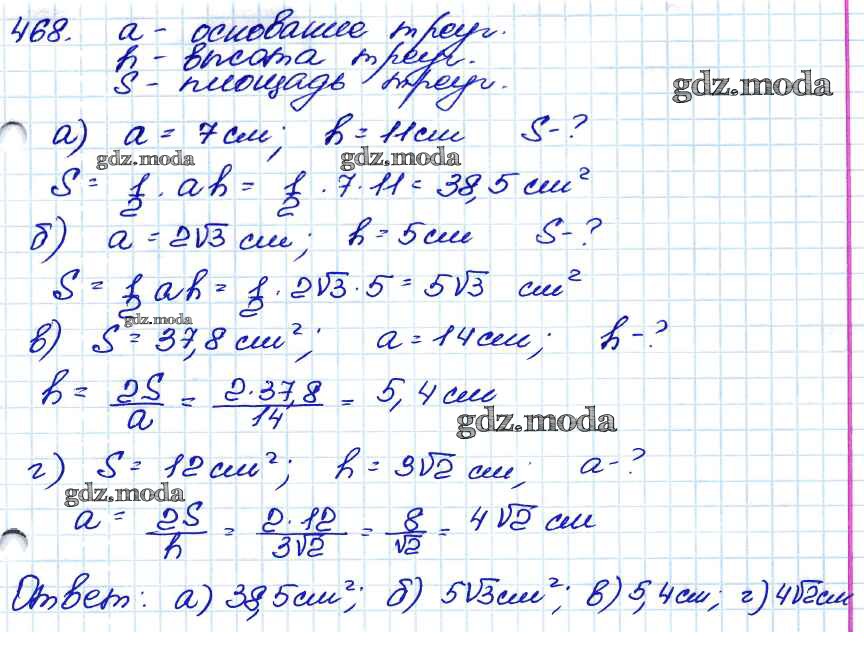 468. a - основание треуг.
h - высота треуг.
S - площадь треуг.
gdz.moda
а) a = 7 см; h = 11 см S - ?
gdz.moda gdz.moda
S = 1/2 · ah = 1/2 · 7 · 11 = 38,5 см²
б) a = 2√3 см; h = 5 см S - ?
S = 1/2 ah = 1/2 · 2√3 · 5 = 5√3 см²
gdz.moda
в) S = 37,8 см²; a = 14 см; h - ?
h = 2S/a = 2·37,8/14 = 5,4 см
gdz.moda
г) S = 12 см²; h = 3√2 см; a - ?
gdz.moda
a = 2S/h = 2·12/3√2 = 8/√2 = 4√2 см
Ответ: а) 38,5 см²; б) 5√3 см²; в) 5,4 см; г) 4√2 см